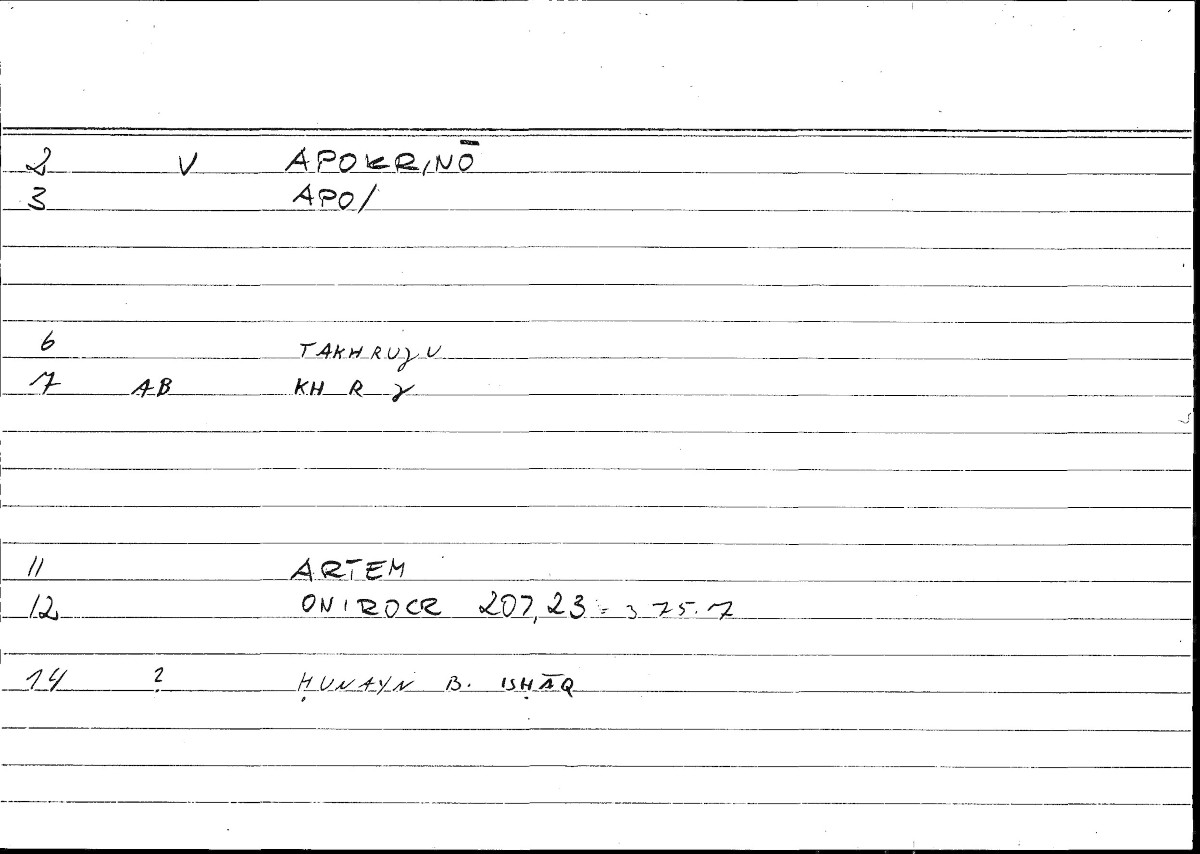 2 V APOKRINŌ
3 APO/
6 TAKHRUJU
7 AB KH R J
11 ARTEM
12 ONIROCR 207,23 = 375.7
14 ? ḤUNAYN B. ISḤĀQ